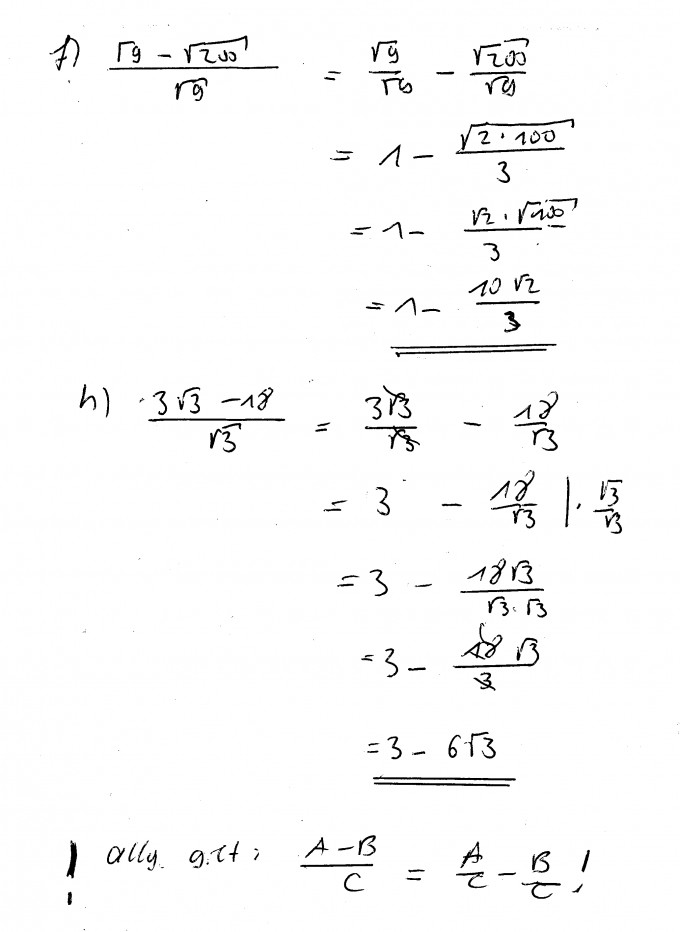 f) (√9 - √200)/√9 = √9/√9 - √200/√9
= 1 - √(2·100)/3
= 1 - (√2·√100)/3
= 1 - 10√2/3
h) (3√3 - 18)/√3 = 3√3/√3 - 18/√3
= 3 - 18/√3 |· √3/√3
= 3 - 18√3/(√3·√3)
= 3 - 18√3/3
= 3 - 6√3
! allg. gilt: (A-B)/C = A/C - B/C !